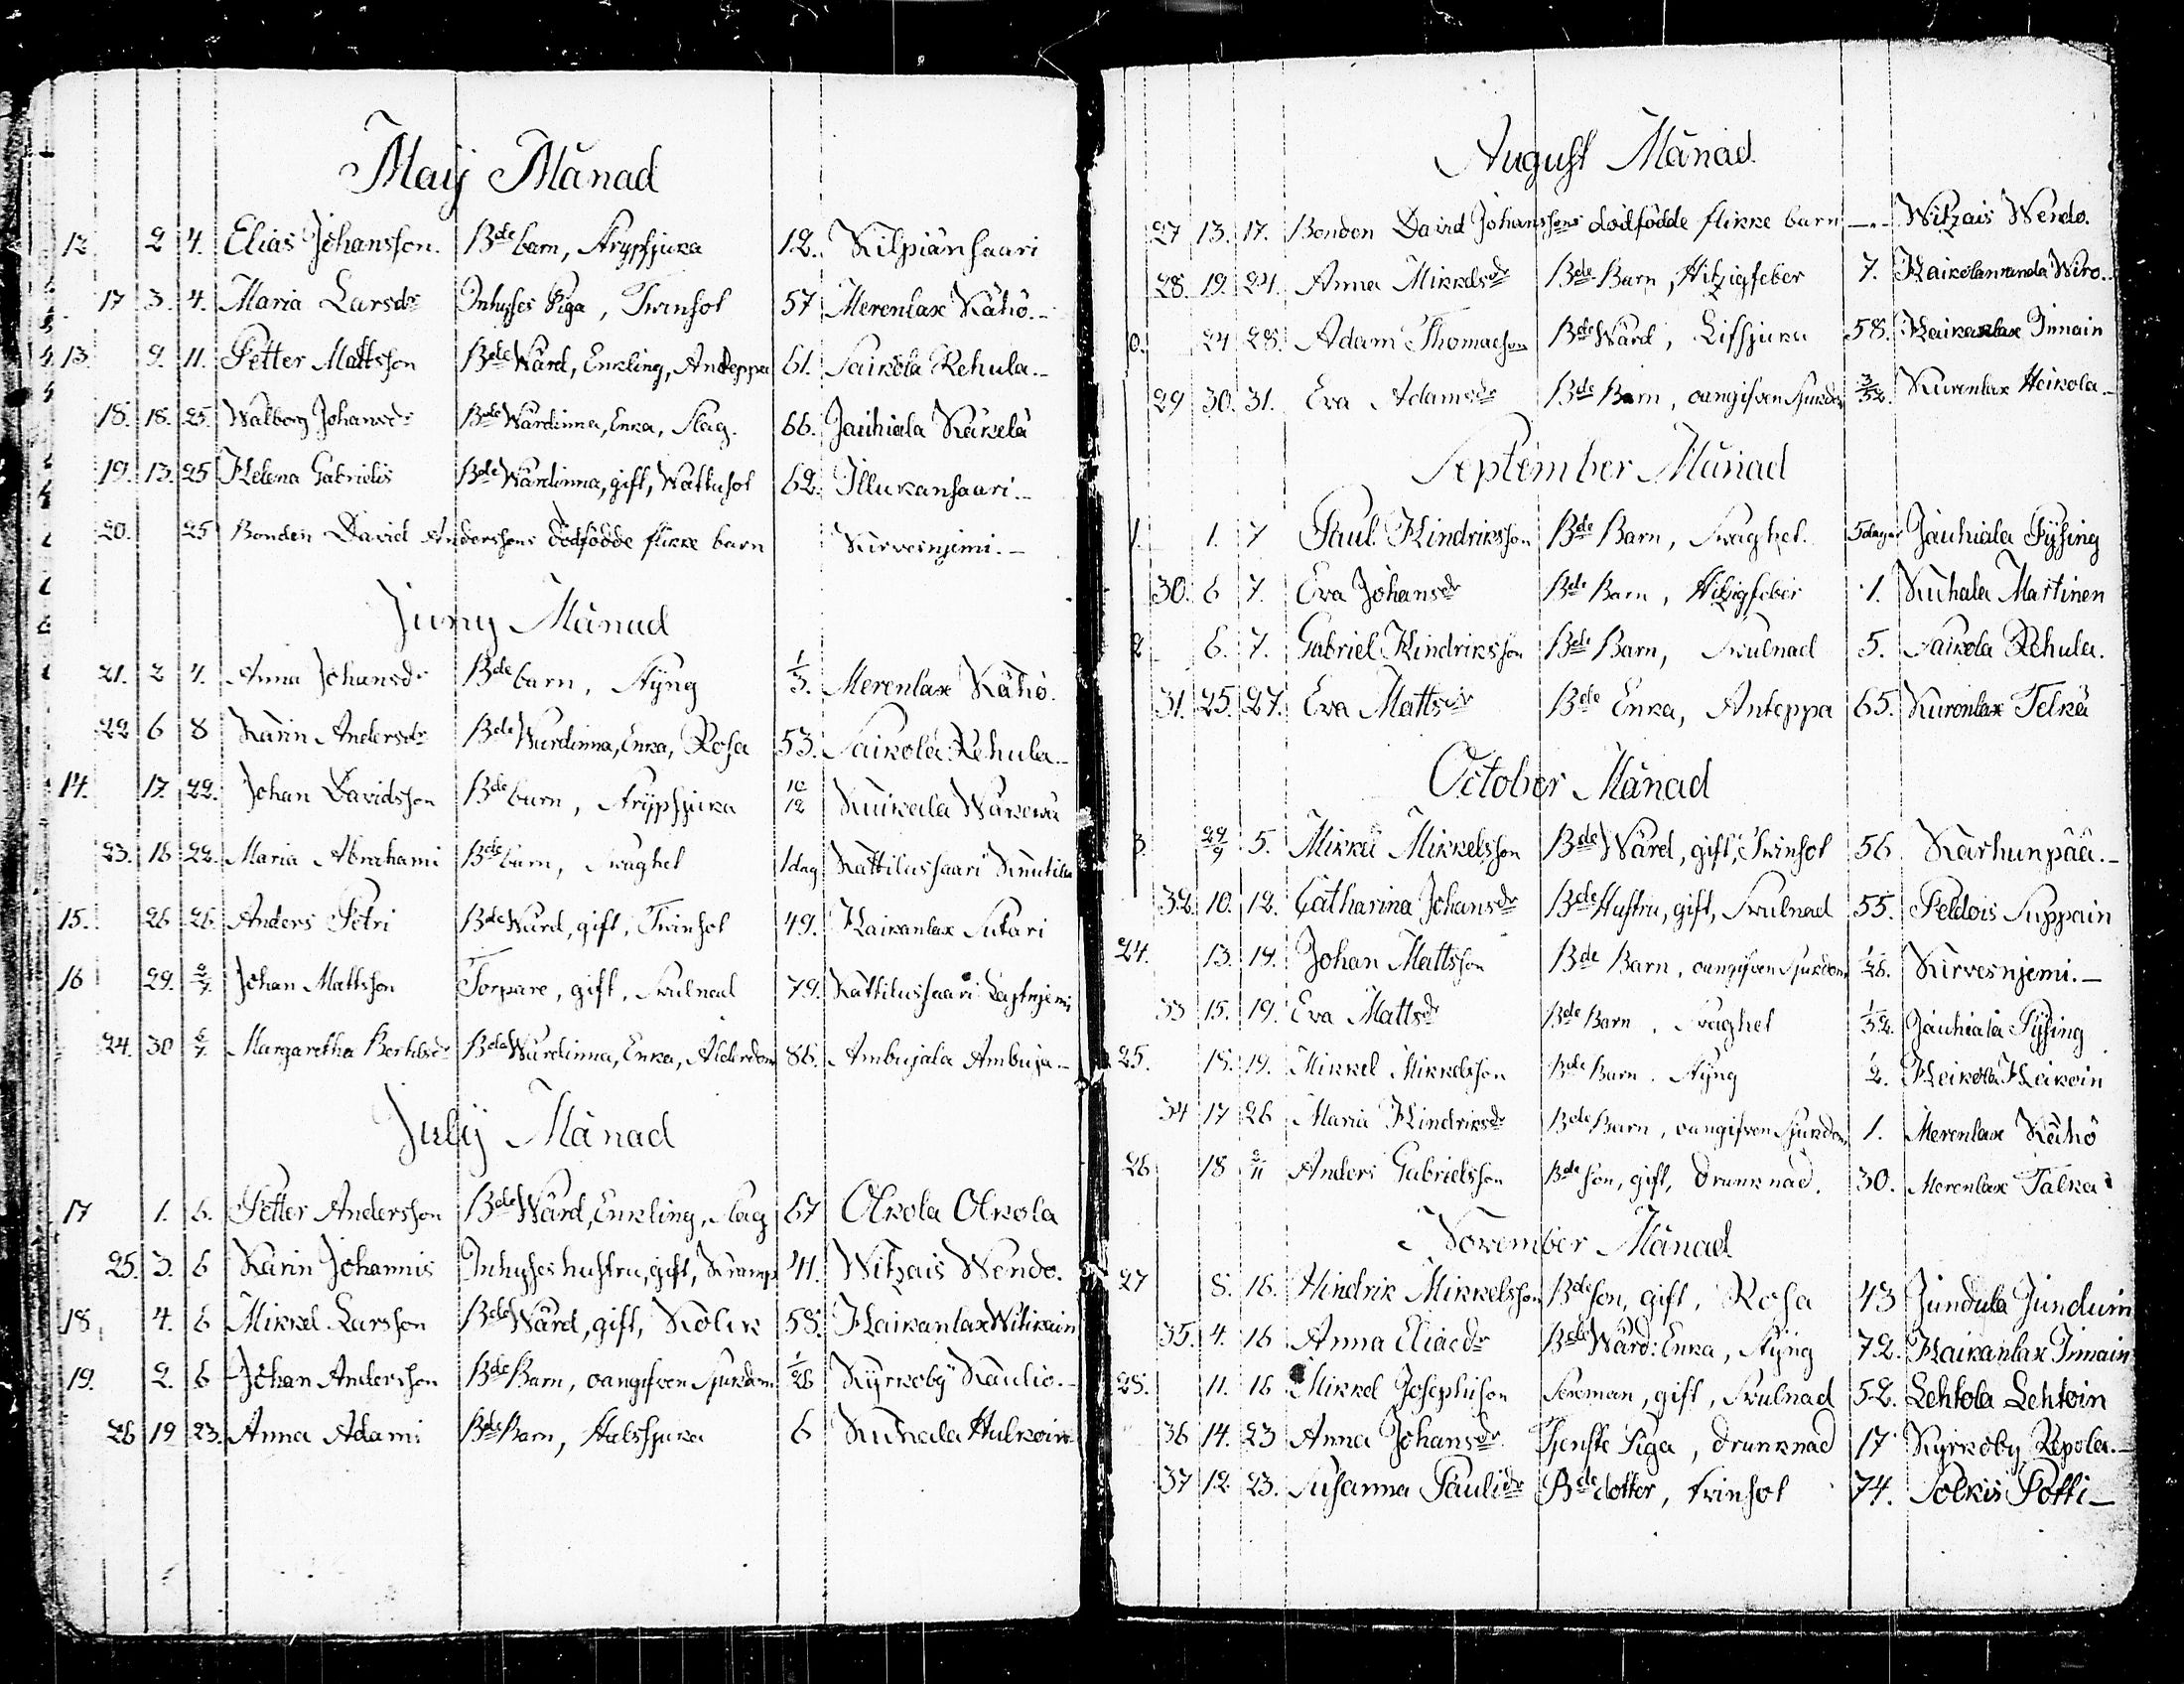 Maij Månad
12. 2 4. Elias Johansson. Bde barn, Strypsjuka 12. Kilpiänsaari
17 3. 4. Maria Larsdr Inhyses Piga, Twinsot 57 Merenlax Kähö.-
13. 9. 11. Petter Mattsson Bde Wärd, Enkling, Andteppa 61. Sairola Rehula.-
18. 18. 25. Walborg Johansdr Bde Wärdinna, Enka, Slag. 66. Jauhiala Kärelä
19. 13. 25 Helena Gabrielis Bde Wärdinna, gift, Wattusot 62. Illukansaari.-
20. 25 Bonden David Anderssons dödfödde flikke barn Kirvesnjemi.-
Juny Månad
21. 2 4. Anna Johansdr Bde barn, Styng 1/3. Merenlax Kähö.
22 6 8 Karin Andersdr Bde Wärdinna, Enka, Rosa 53. Sairola Rehula.-
14. 17. 22. Johan Davidsson Bde barn, Strypsjuka 10/12 Kuikala Wärewä
23. 16 22. Maria Abrahami Bde barn, Swaghet 1 dag Kattilussaari Knutila
15. 26 26. Anders Petri Bde Wärd, gift, Twinsot 49. Kaikanlax Sutari
16 29. 2/7. Johan Mattsson Torpare, gift, Swulnad 79. Kattilussaari
24. 30 2/7. Margaretha Bertilsdr Bde Wärdinna, Enka, Ålderdom 86. Ambujala Ambuja.-
July Månad
17 1. 6. Petter Andersson Bde Wärd, Enkling, Slag 67 Olkola Olkola
25. 3. 6 Karin Johannis Inhyses hustru, gift, Kramp 41. Witzais Wendo.
18. 4. 6 Mikkel Larsson Bde Wärd, gift, Kolik 58. Kaikanlax Witikain
19. 2. 6 Johan Andersson Bde Barn, oangifven Sjukdom 1/26 Kyrkoby Kaulio.-
26 19 23. Anna Adami Bde Barn, Halssjuka 6 Kuhala Hulkoin
August Månad
27 13. 17. Bonden David Johanssons dödfödde flikke barn -.- Witzais Wendo.
28. 19. 24. Anna Mikkelsdr Bde Barn, Hitzigfeber 7. Haikolanranda Wiro.-
0. 24 28. Adam Thomasson Bde Wärd, Lifsjuka 58. Kaikanlax Innain
29 30. 31. Eva Adamsdr Bde Barn, oangifven Sjukdom 3/52. Kurenlax Heikola.-
September Månad
1. 1. 7 Paul Hindriksson Bde Barn, Swaghet. 5 dagar Jauhiala Pysing
30. 6 7. Eva Johansdr Bde Barn, Hitzigfeber 1. Kuhala Martinen
2 6. 7. Gabriel Hindriksson Bde Barn, Swulnad 5. Sairola Rehula.
31. 25. 27. Eva Mattsdr Bde Enka, Anteppa 65. Kurenlax Telkä
October Månad
3. 29/9 5. Mikkel Mikkelsson Bde Wärd, gift, Twinsot 56. Karhunpää.-
32. 10. 12. Catharina Johansdr Bde Hustru, gift, Swulnad 55. Peldois Suppain
24. 13. 14. Johan Mattsson Bde Barn, oangifven Sjukdom 1/26. Kirvesnjemi.-
33 15. 19. Eva Mattsdr Bde Barn, Swaghet 1/52. Jauhiala Pysing
25. 18. 19. Mikkel Mikkelsson Bde Barn, Styng 1/2. Heikola Heikoin
34 17 26 Maria Hindriksdr Bde Barn, oangifven Sjukdom 1. Merenlax Kähö
26 18 2/11 Anders Gabrielsson Bde Son, gift, Drunknad. 30. Merenlax Talka
November Månad
27 8. 16. Hindrik Mikkelsson Bde Son, gift, Rosa 43 Jundula Junduin
35. 4. 16 Anna Eliaedr Bde Wärd: Enka, Styng 72. Kaikanlax Innain
28. 11. 16 Mikkel Josephsson Sexman, gift, Swulnad 52. Lehtola Lehtoin
36 14. 23 Anna Johansdr Tjenste Piga, Drunknad 17 Kyrkoby Repola.-
37 12. 23. Susanna Paulidr Bde dotter, twinsot 74. Solkis Potti-